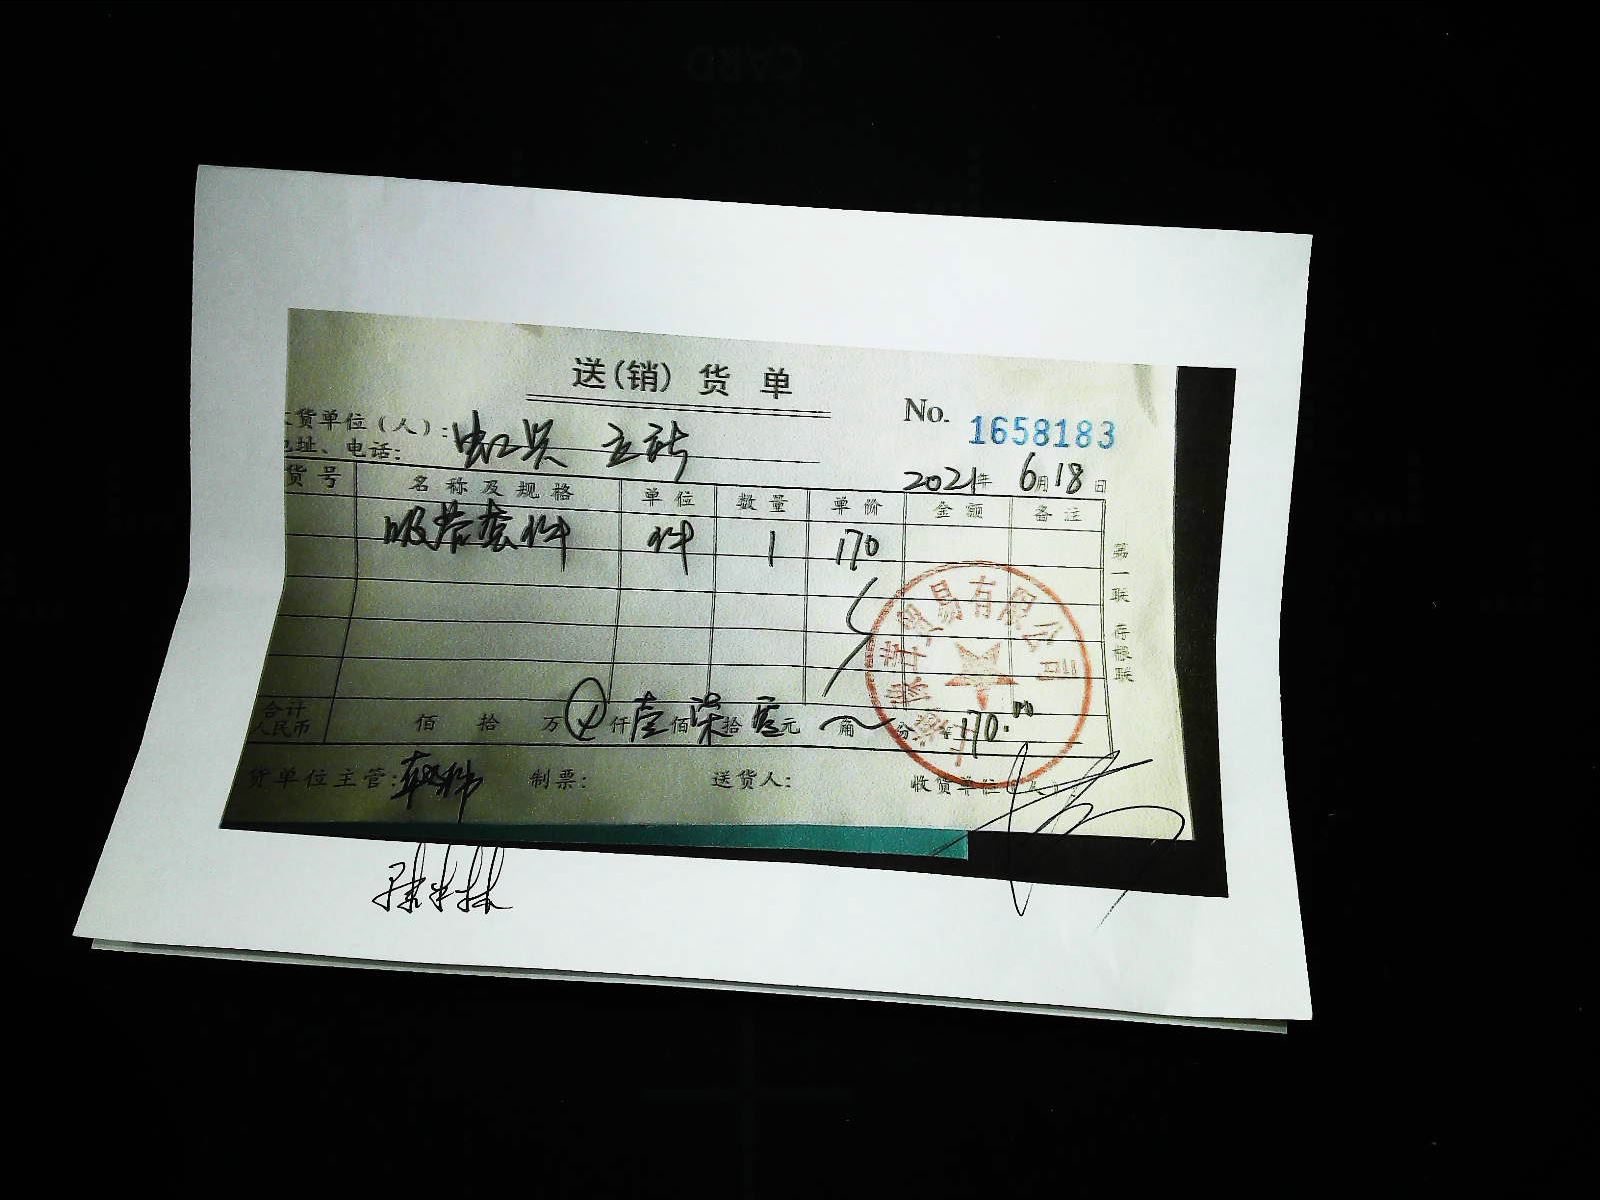 送(销)货单
No. 1658183
货单位(人):
址、电话:
2021年 6月18日
货号 名称及规格 单位 数量 单价 金额 备注
吸塔套件 件 1 170
第一联 存根联
贸易有限公司
合计人民币 佰 拾 万 仟壹佰柒拾零元 角 分 ¥170.00
货单位主管: 制票: 送货人: 收货单位(人):